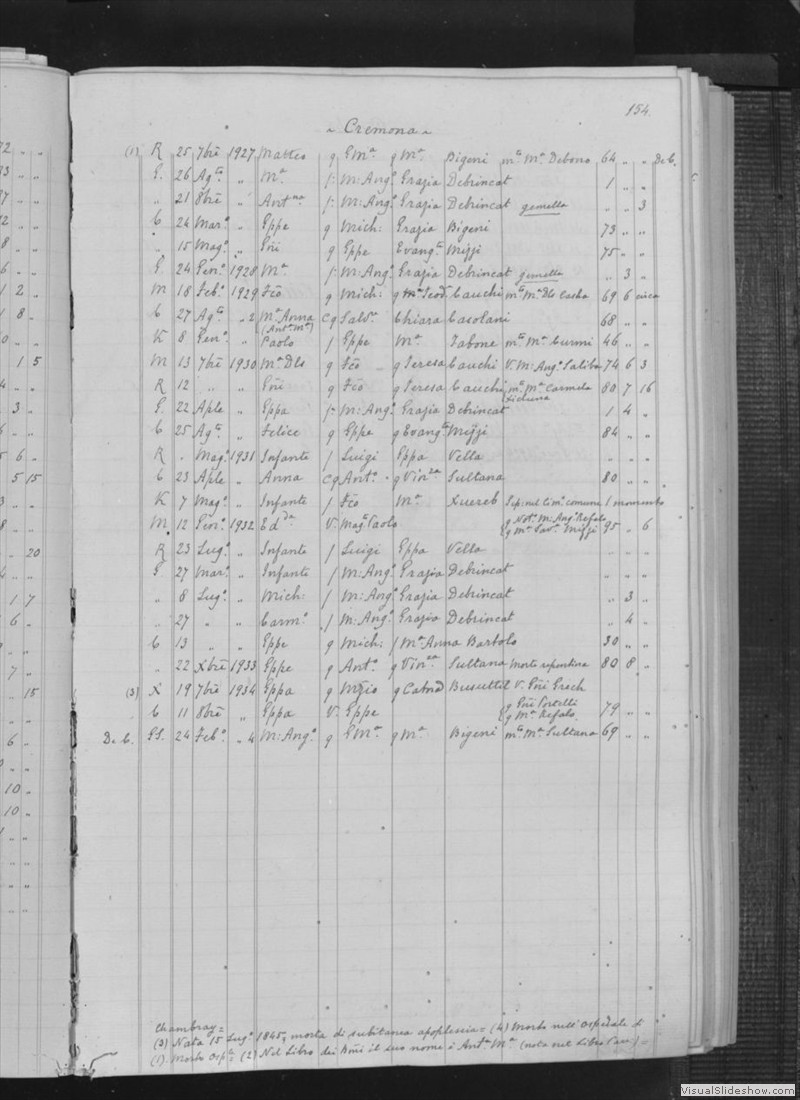 154.
Cremona
(1) R 25 7bre 1927 Matteo g GMa g Ma Bigeni mto Ma Debono 64 „ „ De C.
G. 26 Agto „ Ma f: M: Ango Grazia Debrincat 1 „ „
„ 21 8bre „ Antna f: M: Ango Grazia Debrincat gemella „ „ 3
C 24 Maro „ Eppe g Mich: Grazia Bigeni 73 „ „
„ 15 Mago „ g Eppe Evangta Mizzi 75 „ „
G 24 Geno 1928 Ma f: M: Ango Grazia Debrincat gemella „ 3 „
M 18 Febo 1929 Fco g Mich: g Teod. Cauchi mto Ma Dls 69 6 circa
C 27 Agto „ 2 Ma Anna cg Salvre Chiara Casolani 68 „ „
(Anta Ma)
K 8 Geno „ Paolo f Eppe Ma Tabone mto Ma Curmi 46 „ „
M 13 7bre 1930 Ma Dls g Fco g Teresa Cauchi V. M: Ango Saliba 74 6 3
R 12 „ „ g Fco g Teresa Cauchi mto Ma Carmela 80 7 16
Licluna
G. 22 Aple „ Eppa f: M: Ango Grazia Debrincat 1 4 „
C 25 Agto „ Felice g Eppe g Evangta Mizzi 84 „ „
R . Mago 1931 Infante f Luigi Eppa Vella „ „ „
C 23 Aple „ Anna cg Anto g Vinza Sultana 80 „ „
K 7 Mago „ Infante f Fco Ma Xuereb Sep: nel Cimo comune 1 momento
M. 12 Geno 1932 V. Mago Paolo g Noto M: Ango Refalo 95 „ 6
g Ma Savna Mizzi
R 23 Lugo „ Infante f Luigi Eppa Vella „ „ „
G 27 Maro „ Infante f M: Ango Grazia Debrincat „ „ „
„ 8 Lugo „ Mich: f M: Ango Grazia Debrincat „ 3 „
„ 27 „ „ Carmo f M: Ango Grazia Debrincat „ 4 „
C 13 „ „ Eppe g Mich: f Ma Anna Bartolo 30 „ „
„ 22 Xbre 1933 Eppe g Anto g Vinza Sultana Morte repentina 80 8 „
(3) X 19 7bre 1934 Eppa g g Catna Busuttil V.
C 11 8bre „ Eppa V. Eppe g Portelli 79 „ „
g Ma Refalo
De C. SS. 24 Febo „ 4 M: Ango g GMa g Ma Bigeni mto Ma Sultana 69 „ „
Chambray =
(3) Nata 15 Lugo 1845, morta di subitanea apoplessia = (4) Morto nell' Ospedale di
(1) Morto Osple: (2) Nel Libro dei il suo nome è Anta Ma (nota nel Libro =
VisualSlideshow.com